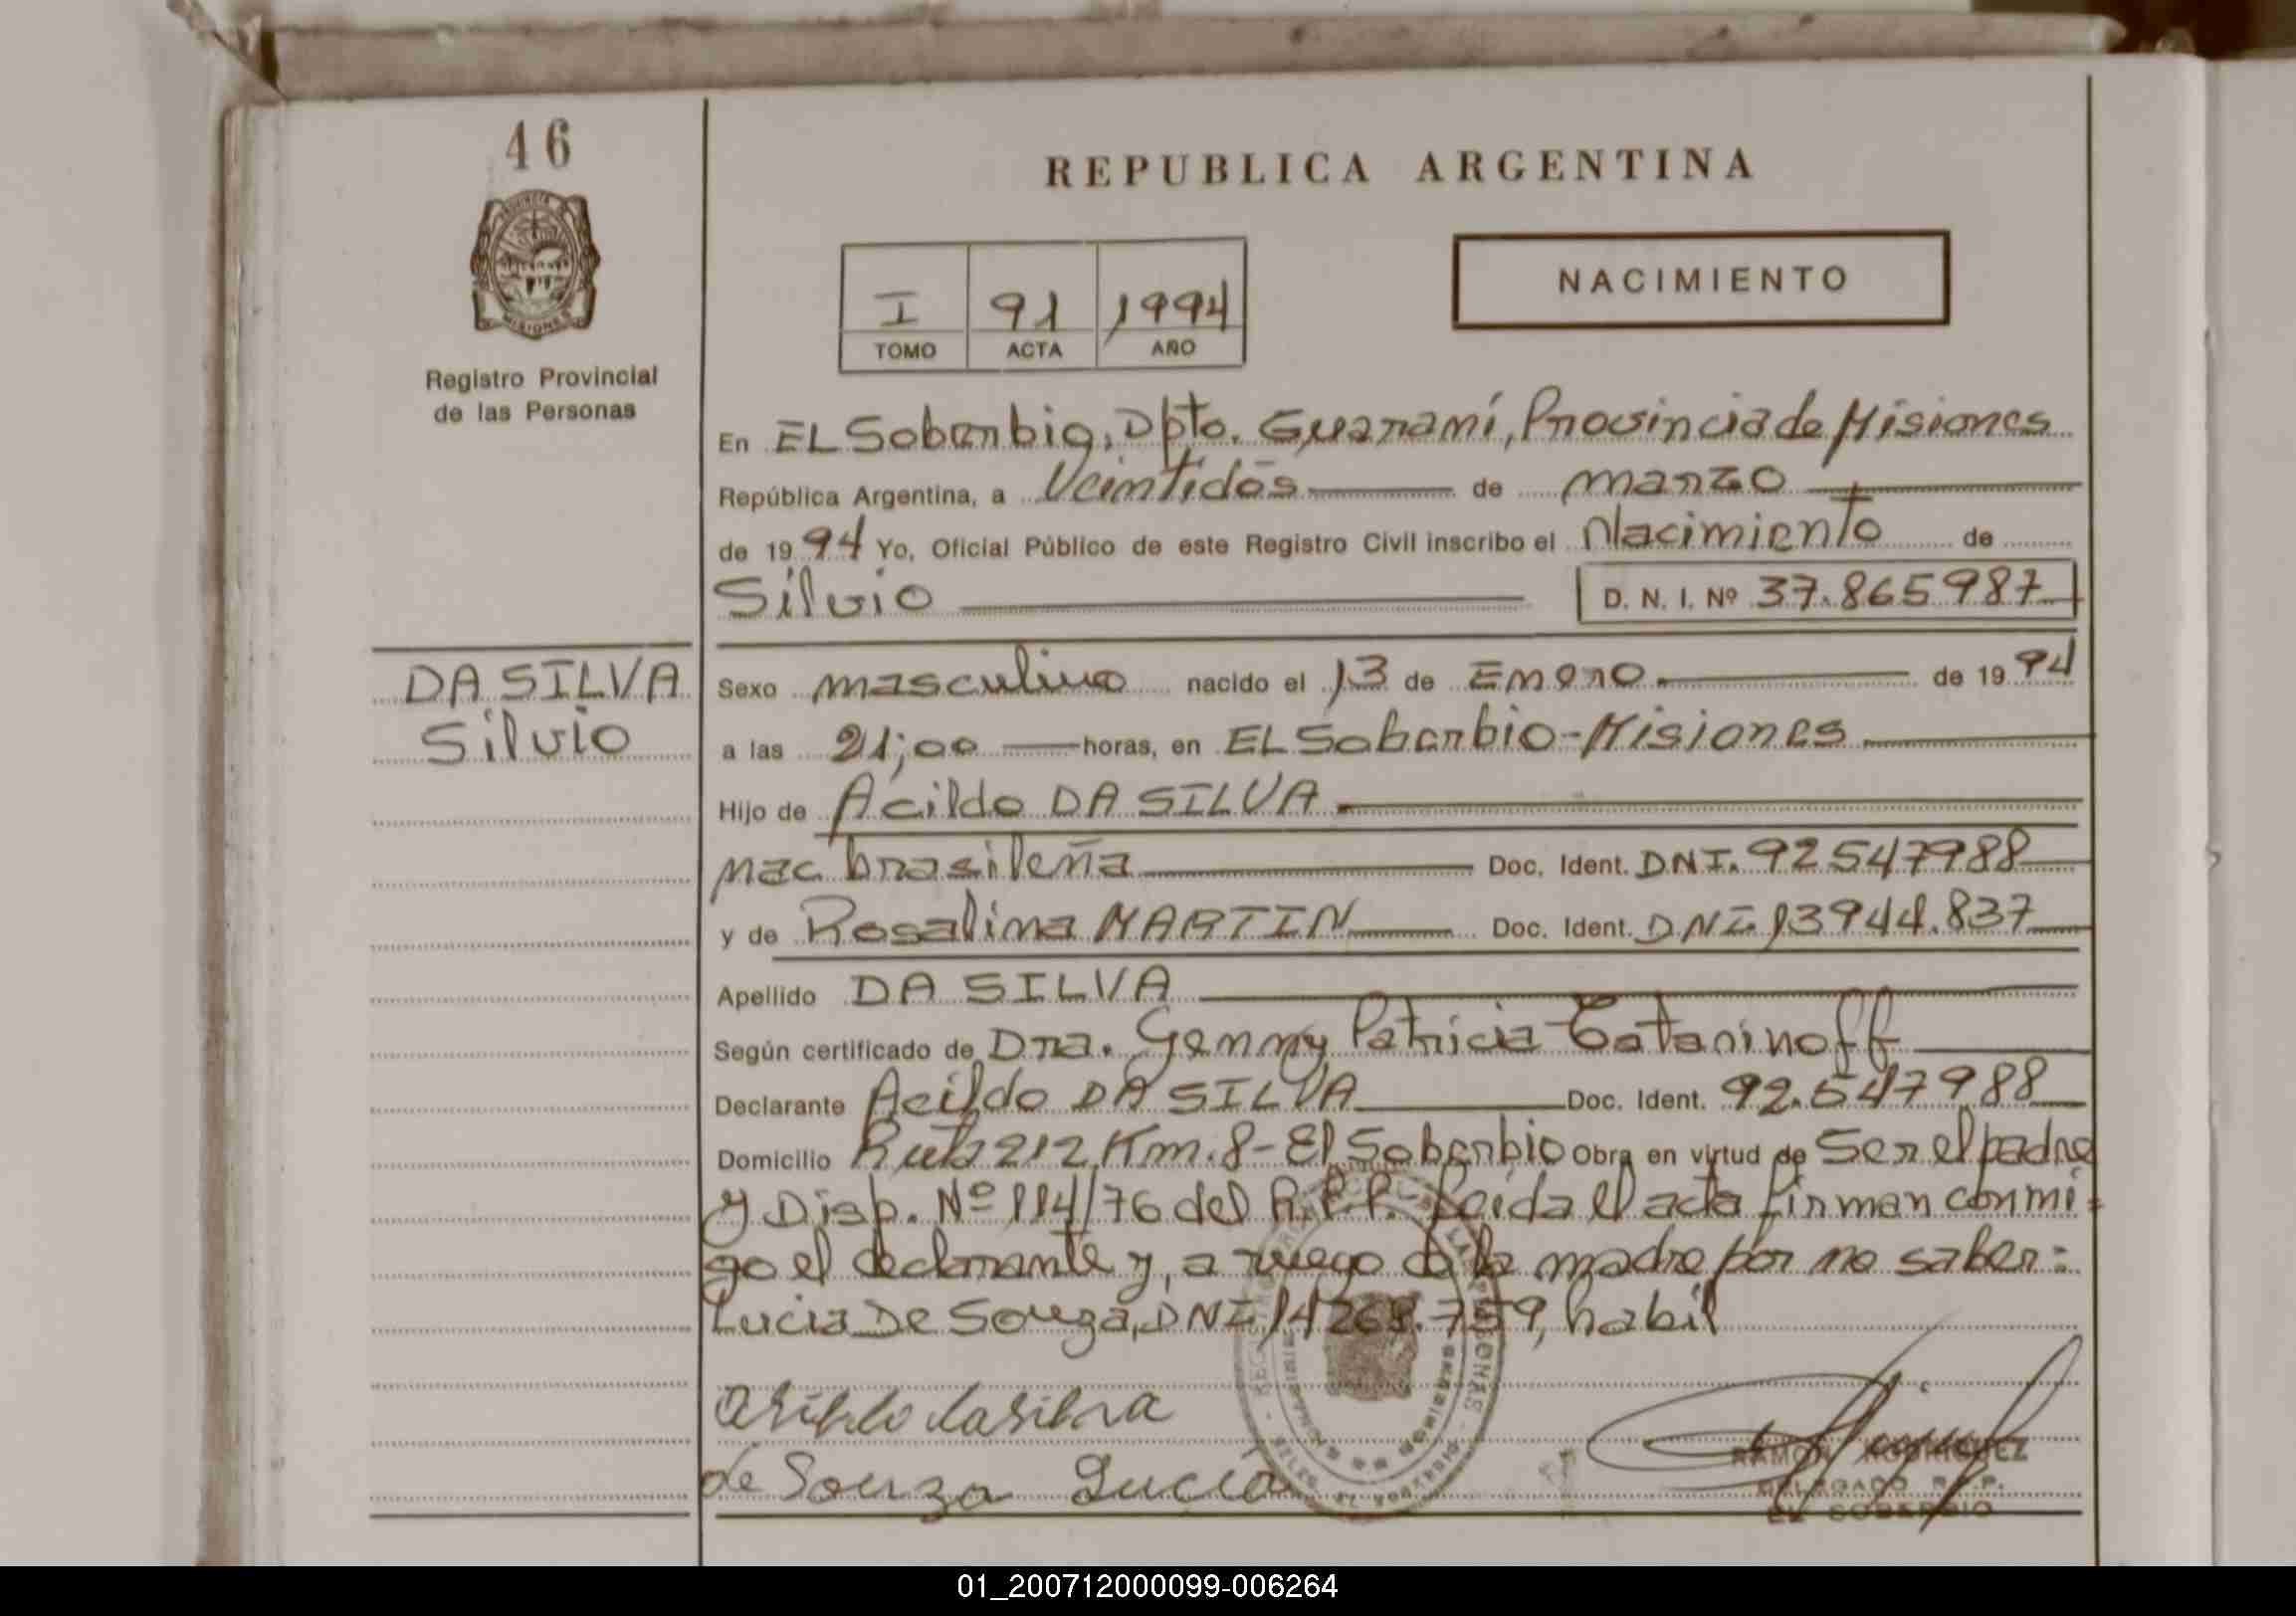 46
REPUBLICA ARGENTINA
PROVINCIA
MISIONES
NACIMIENTO
I 91 1994
TOMO ACTA AÑO
Registro Provincial
de las Personas
En EL Soberbio, Dpto. Guaraní, Provincia de Misiones
República Argentina, a Veintidós de marzo
de 1994 Yo, Oficial Público de este Registro Civil inscribo el Nacimiento de
Silvio D. N. I. Nº 37.865987
DA SILVA
Silvio
Sexo masculino nacido el 13 de Enero de 1994
a las 21;00 horas, en EL Soberbio-Misiones
Hijo de Acildo DA SILVA
nac. brasileña Doc. Ident. DNI. 92547988
y de Rosalina MARTIN Doc. Ident. DNI 13944.837
Apellido DA SILVA
Según certificado de Dra. Genmy Patricia
Declarante Acildo DA SILVA Doc. Ident. 92.547988
Domicilio Ruta 212 Km. 8- El Soberbio Obra en virtud de Ser el padre
y Disp. Nº 114/76 del R.P.P. Leída el acta firman conmi-
go el declarante y, a ruego de la madre por no saber:
Lucia De Souza, DNI 14268.759, habil
de Souza Lucia
RAMON RODRIGUEZ
DELEGADO R.P.P.
EL SOBERBIO
01_200712000099-006264